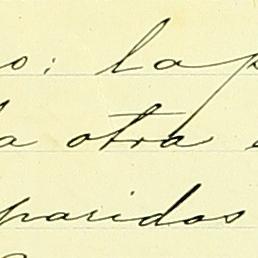 o: la p
a otra
paridos